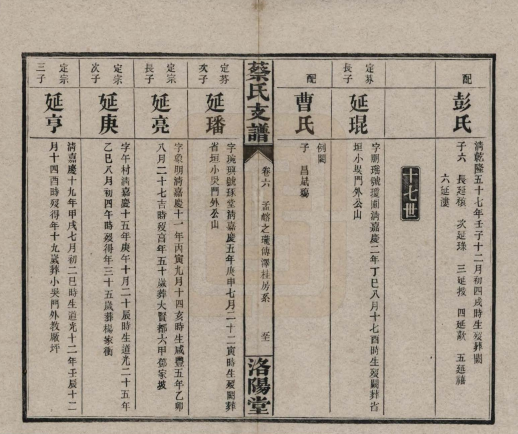 配
彭氏
清乾隆五十七年壬子十二月初四戌時生歿葬闕
子六 長延 次延 三延 四延 五延
六延
十七世
定芬
長子
延琨
字 號 清嘉慶二年丁巳八月十七酉時生歿闕葬省
垣小吳門外公山
配
曹氏
例闕
子 昌
蔡氏支譜
卷六 孟 之 傳澤桂房系
至
洛陽堂
定芬
次子
延璠
字琬 號 堂清嘉慶五年庚申七月二十二寅時生歿闕葬
省垣小吳門外公山
定宗
長子
延亮
字 明清嘉慶十一年丙寅九月十四亥時生咸豐五年乙卯
八月二十七吉時歿享年五十歲葬大賢都六甲 家坡
定宗
次子
延庚
字午村清嘉慶十五年庚午十月二十辰時生道光二十五年
乙巳八月初四午時歿得年三十五歲葬楊家衝
定宗
三子
延亨
清嘉慶十九年甲戌七月初二 時生道光十二年壬辰十二
月十四酉時歿得年十九歲葬小吳門外教厰坪